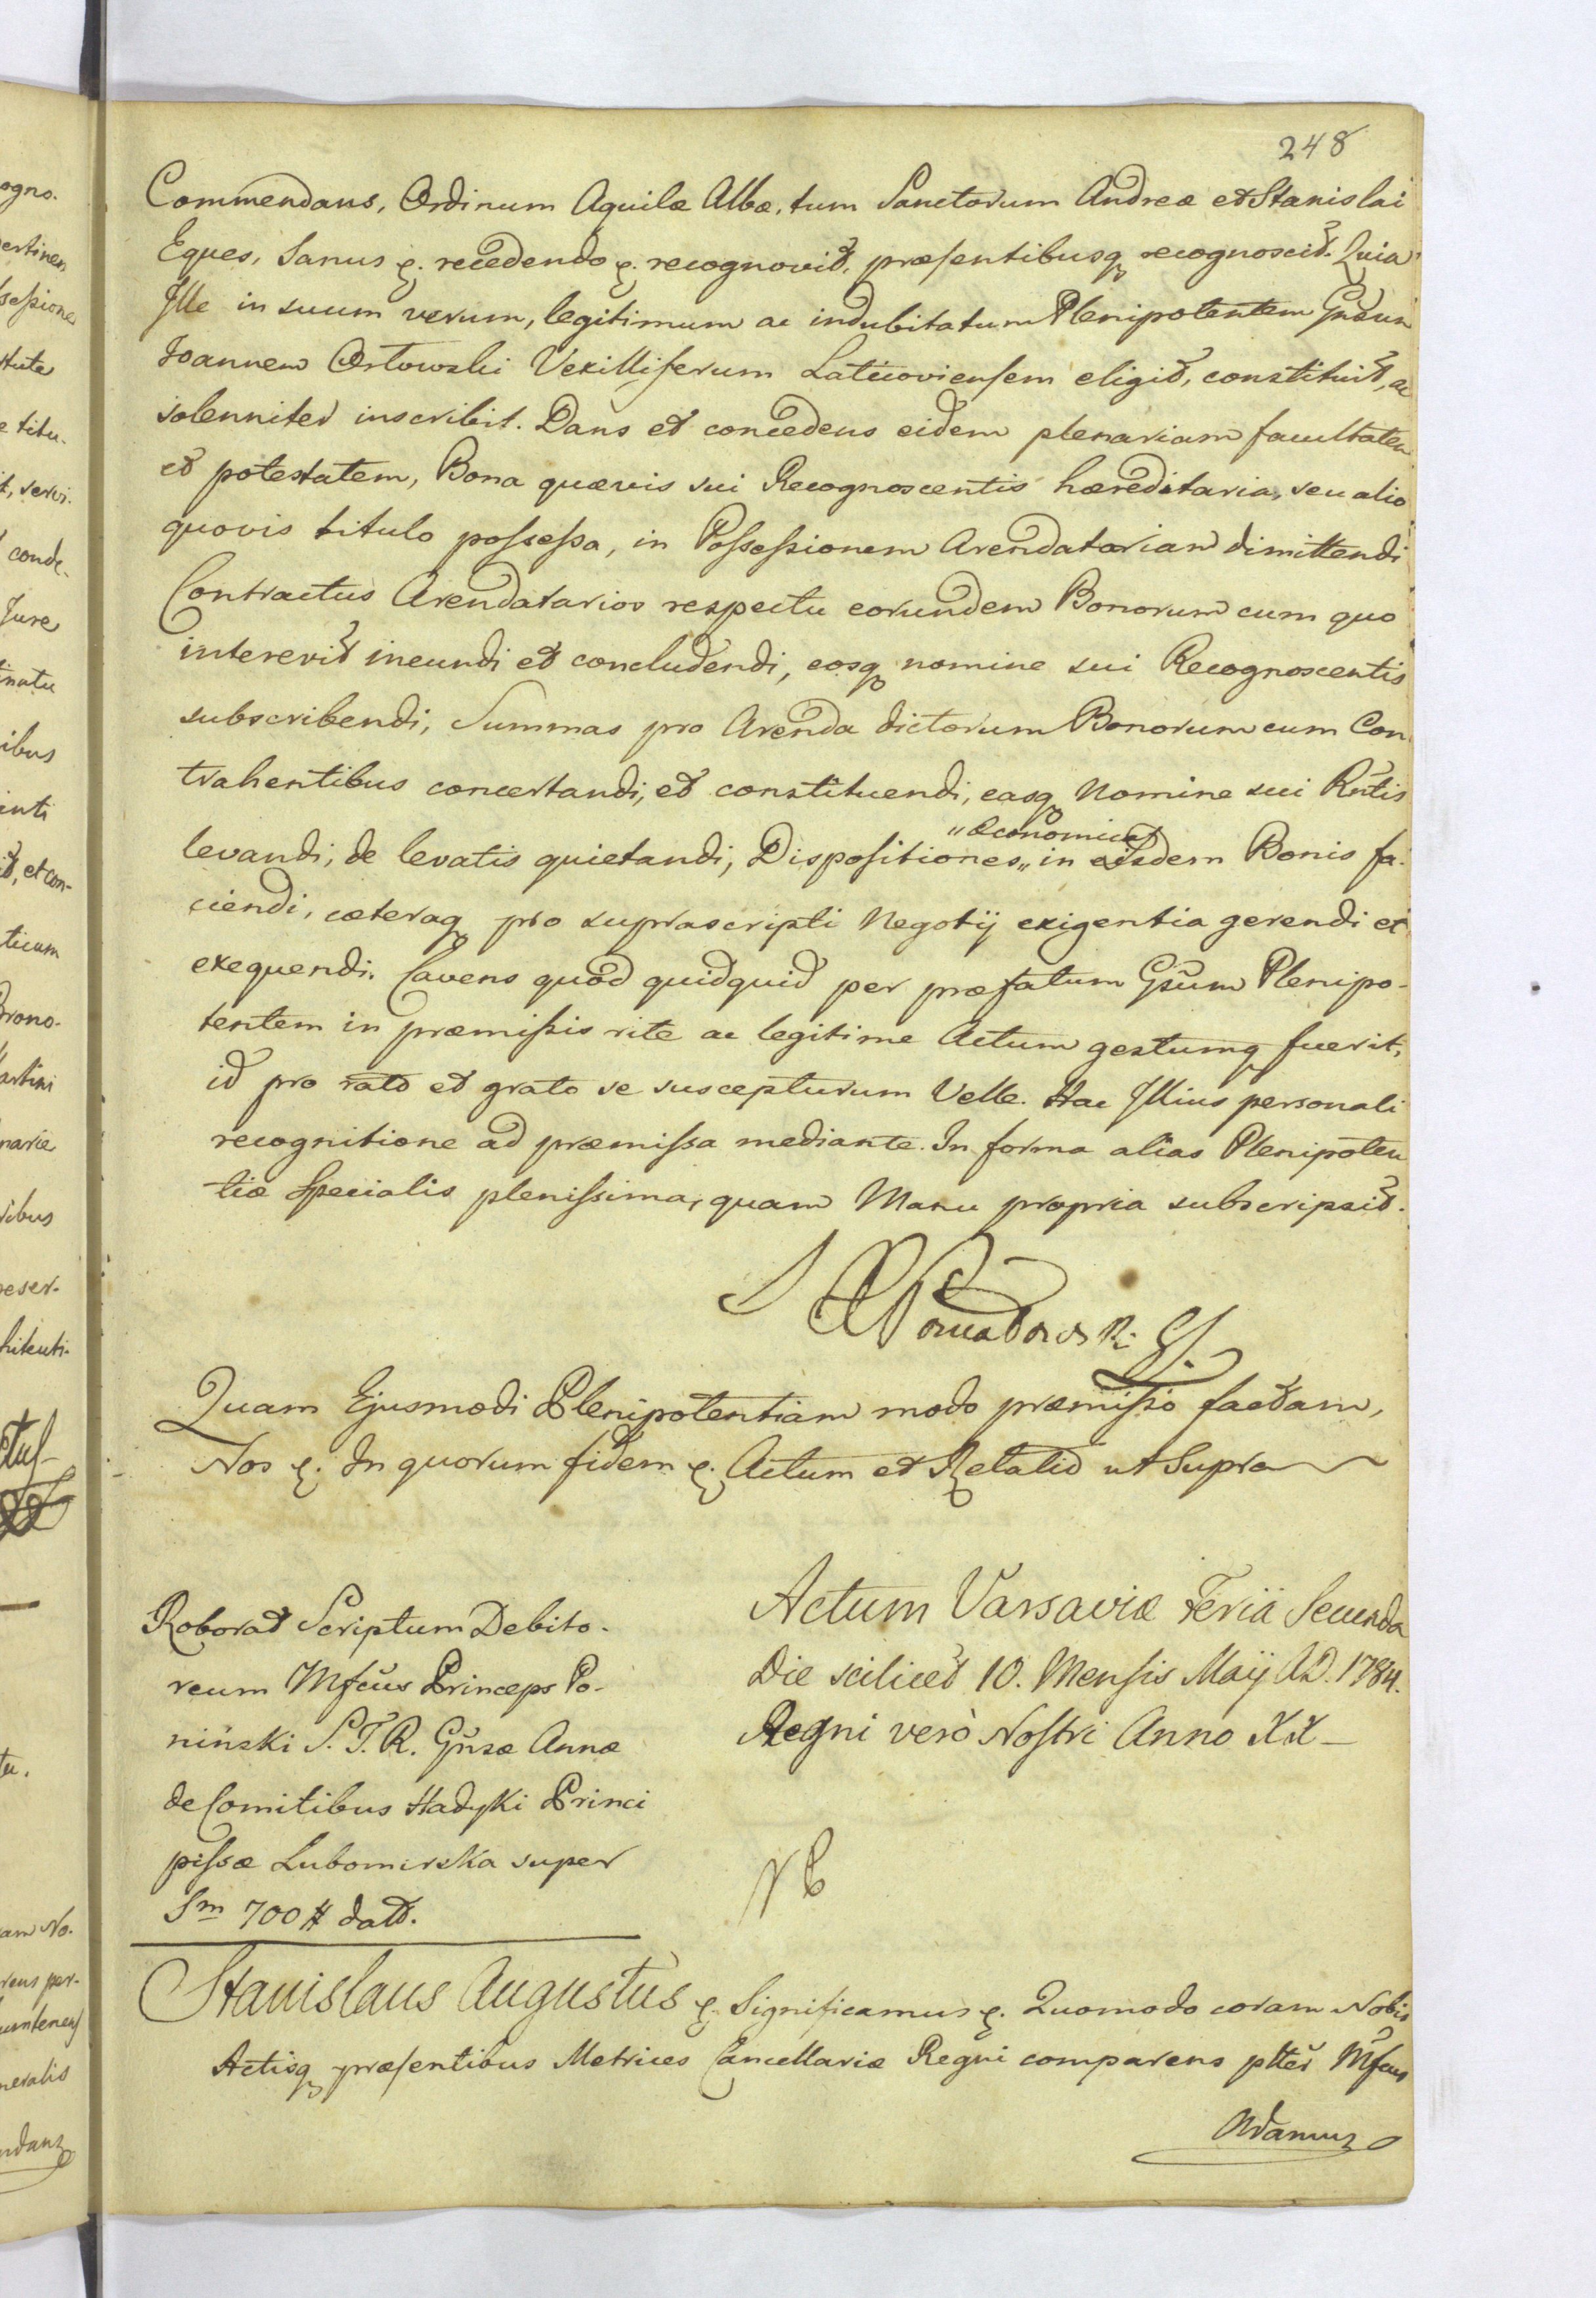 248
Commendans, Ordinum Aquilæ Albæ, tum Sanctorum Andreæ et Stanislai
Eques, Sanus &. recedendo &. recognovit, præsentibusq recognoscit. Quia
Ille in suum verum, legitimum ac indubitatum Plenipotentem Gnsum
Joannem Orłowski Vexilliferum Laticoviensem eligit, constituit, ac
solenniter inscribit. Dans et concedens eidem plenariam facultatem
et potestatem, Bona quævis sui Recognoscentis hæreditaria, seu alio
quovis titulo possessa, in Possessionem Arendatoriam dimittendi
Contractus Arendatarios respectu eorundem Bonorum cum quo
intererit ineundi et concludendi, eosq nomine sui Recognoscentis
subscribendi, Summas pro Arenda dictorum Bonorum cum Con
trahentibus concertandi, et constituendi, easq Nomine sui Rntis
levandi, de levatis quietandi, Dispositiones „ œconomicas „ in eisdem Bonis fa-
ciendi, cæteraq pro suprascripti Negotij exigentia gerendi et
exequendi. Cavens quod quidquid per præfatum Gsum Plenipo-
tentem in præmissis rite ac legitime Actum gestumq fuerit,
id pro rato et grato se suscepturum Velle. Hac Illius personali
recognitione ad præmissa mediante. In forma alias Plenipoten
tiæ Specialis plenissima, quam Manu propria subscripsit.
Quam Ejusmodi Plenipotentiam modo præmisso factam,
Nos &. In quorum fidem &. Actum et Relatio ut Supra
Roborat Scriptum Debito-
reum Mfcus Princeps Po-
niński S. T. R. Gnsæ Annæ
de Comitibus Hadyki Princi
pissæ Lubomirska super
Sm 700 # dato.
Actum Varsaviæ Feria Secunda
Die scilicet 10. Mensis Maij AD. 1784.
Regni verò Nostri Anno XX
Stanislaus Augustus &. Significamus &. Quomodo coram Nobis
Actisq præsentibus Metrices Cancellariæ Regni comparens plter Mfcus
Adamus